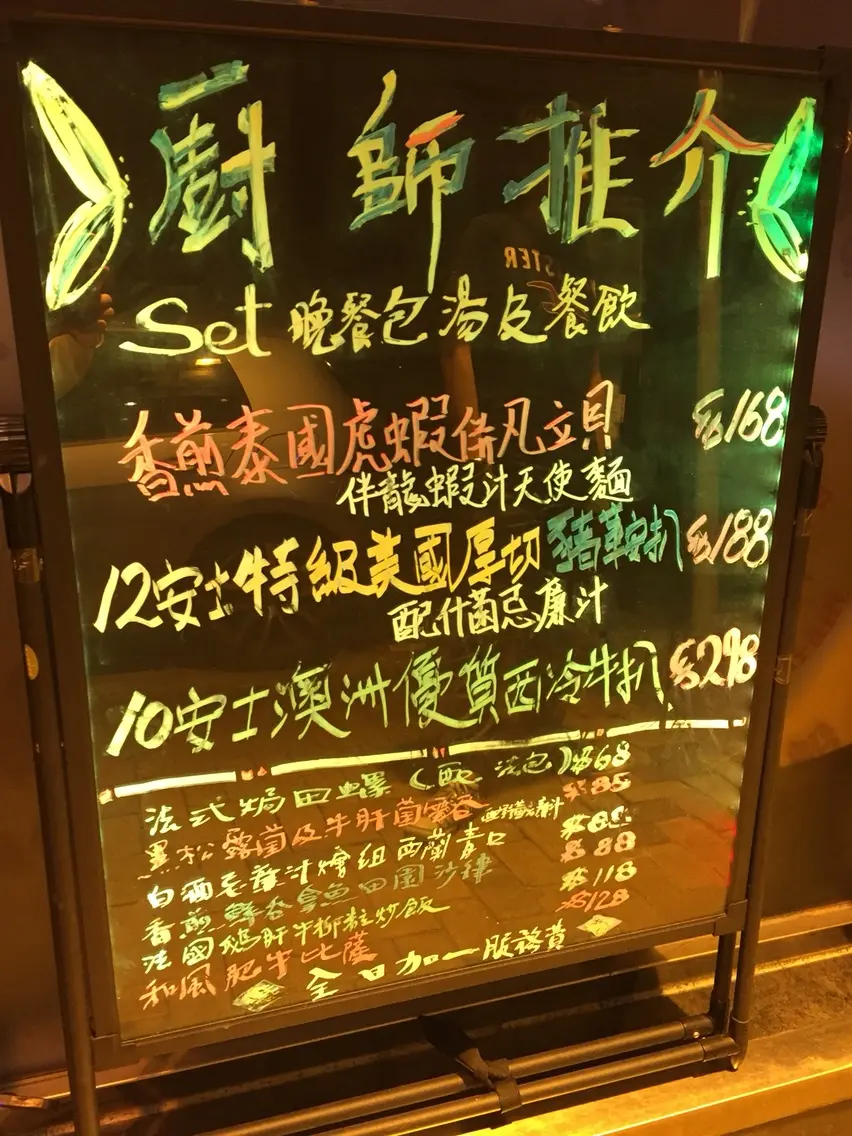 廚師推介
Set 晚餐包湯及餐飲
香煎泰國虎蝦併凡立貝 $168
伴龍蝦汁天使麵
12安士特級美國厚切豬鞍扒 $188
配什菌忌廉汁
10安士澳洲優質西冷牛扒 $298
法式焗田螺(配法包) $68
黑松露菌及牛肝菌雲吞 $85
白酒忌廉汁燴紐西蘭青口
香煎 魚田園沙律 $88
法國鵝肝牛柳粒炒飯 $118
和風肥牛比薩 $128
全日加一服務費